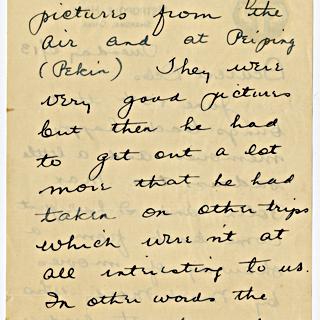 pictures from the
air and at Peiping
(Pekin) They were
very good pictures
but then he had
to get out a lot
more that he had
taken on other trips
which were n't at
all intersting to us.
In other words the